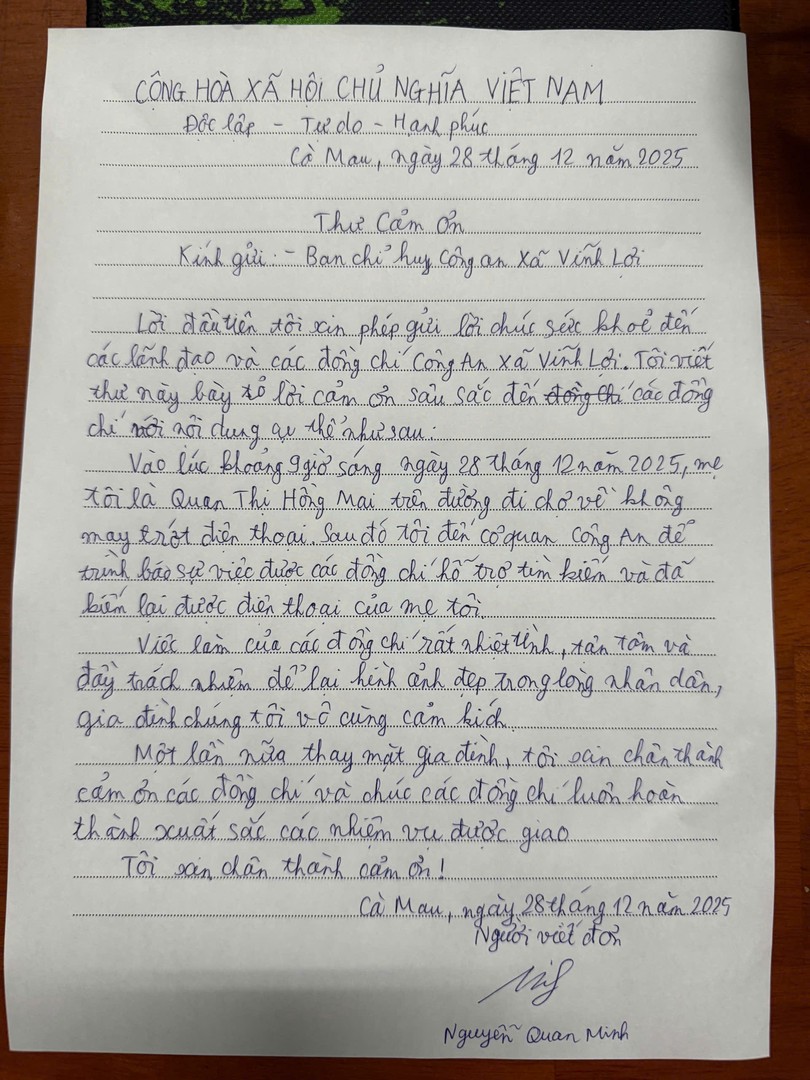 CỘNG HÒA XÃ HỘI CHỦ NGHĨA VIỆT NAM
Độc lập - Tự do - Hạnh phúc
Cà Mau, ngày 28 tháng 12 năm 2025
Thư Cảm ơn
Kính gửi: - Ban chỉ huy Công an Xã Vĩnh Lợi
Lời đầu tiên tôi xin phép gửi lời chúc sức khoẻ đến
các lãnh đạo và các đồng chí Công An Xã Vĩnh Lợi. Tôi viết
thư này bày tỏ lời cảm ơn sâu sắc đến đồng chí các đồng
chí với nội dung cụ thể như sau:
Vào lúc khoảng 9 giờ sáng ngày 28 tháng 12 năm 2025, mẹ
tôi là Quan Thị Hồng Mai trên đường đi chợ về không
may rớt điện thoại. Sau đó tôi đến cơ quan Công An để
trình báo sự việc được các đồng chí hỗ trợ tìm kiếm và đã
kiếm lại được điện thoại của mẹ tôi.
Việc làm của các đồng chí rất nhiệt tình, tận tâm và
đầy trách nhiệm để lại hình ảnh đẹp trong lòng nhân dân,
gia đình chúng tôi vô cùng cảm kích.
Một lần nữa thay mặt gia đình, tôi xin chân thành
cảm ơn các đồng chí và chúc các đồng chí luôn hoàn
thành xuất sắc các nhiệm vụ được giao
Tôi xin chân thành cảm ơn!
Cà Mau, ngày 28 tháng 12 năm 2025
Người viết đơn
Nguyễn Quan Minh